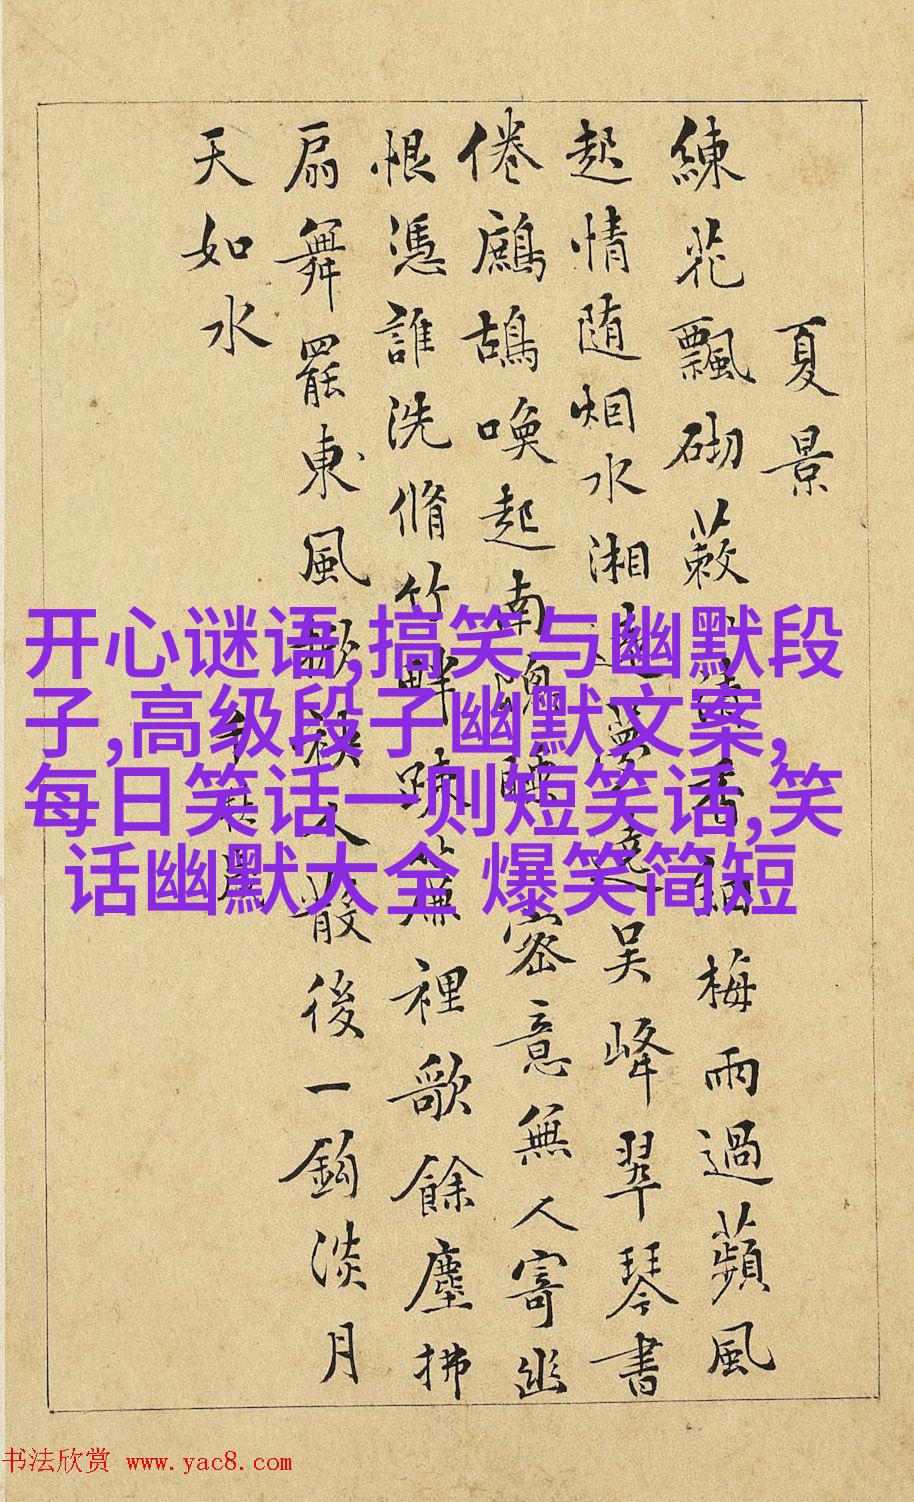 夏景
練花飄砌蔌香細梅雨過蘋風
起情随烟水湘遠夢繞吴峰翠琴書
倦鷓鴣唤起南窗睡密意無人寄幽
恨憑誰洗脩竹畔疎簾裡歌餘塵拂
扇舞罷東風掀袂人散後一鈎淡月
天如水
开心谜语,搞笑与幽默段
子,高级段子幽默文案,
每日笑话一则短笑话,笑
话幽默大全 爆笑简短
书法欣赏 www.yac8.com